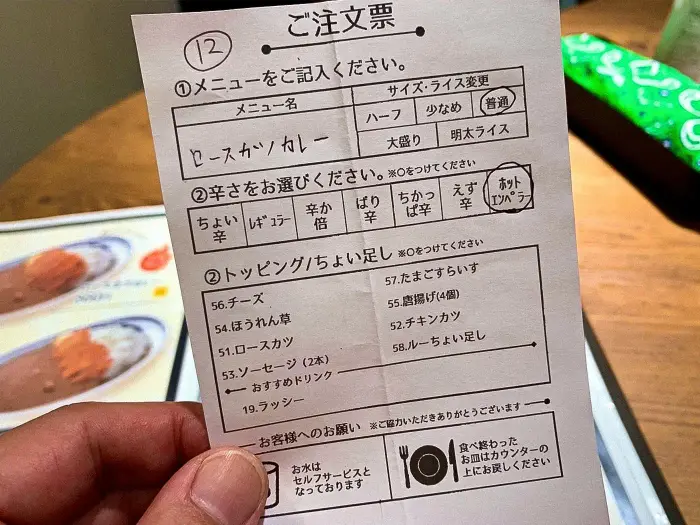 12
ご注文票
①メニューをご記入ください。
メニュー名
サイズ・ライス変更
ロースカツカレー
ハーフ 少なめ 普通
大盛り 明太ライス
②辛さをお選びください。※○をつけてください
ちょい辛 レギュラー 辛か倍 ばり辛 ちかっぱ辛 えず辛 ホットエンペラー
②トッピング/ちょい足し ※○をつけてください
56.チーズ
54.ほうれん草
51.ロースカツ
53.ソーセージ(2本)
57.たまごすらいす
55.唐揚げ(4個)
52.チキンカツ
58.ルーちょい足し
おすすめドリンク
19.ラッシー
お客様へのお願い ※ご協力いただきありがとうございます
お水は
セルフサービスと
なっております
食べ終わった
お皿はカウンターの
上にお戻しください